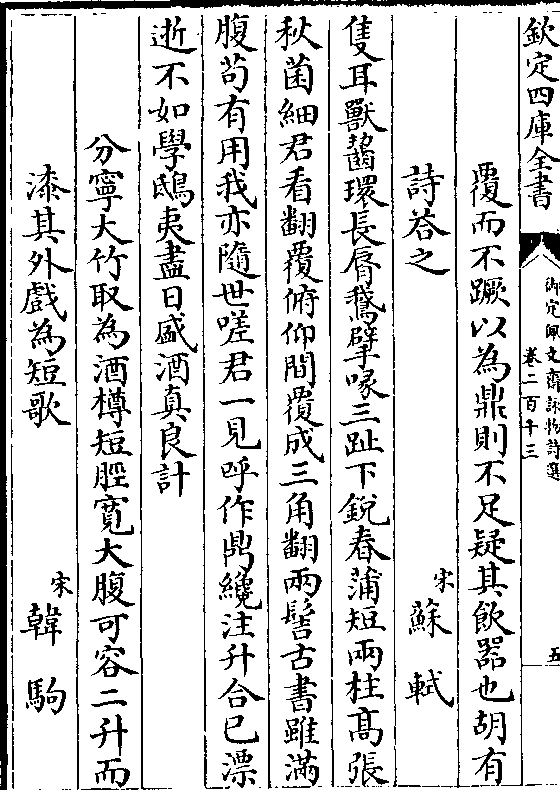 欽定四庫全書
御定佩文齋詠物詩選
卷二百十三
五
覆而不蹶以為鼎則不足疑其飲器也胡有
詩答之 宋 蘇軾
隻耳獸齧環長脣鵝擘喙三趾下銳春蒲短兩柱髙張
秋菌細君看翻覆俯仰間覆成三角翻兩髻古書雖滿
腹苟有用我亦隨世嗟君一見呼作鼎纔注升合已漂
逝不如學鴟夷盡日盛酒真良計
分寧大竹取為酒樽短脛寛大腹可容二升而
漆其外戲為短歌 宋 韓駒